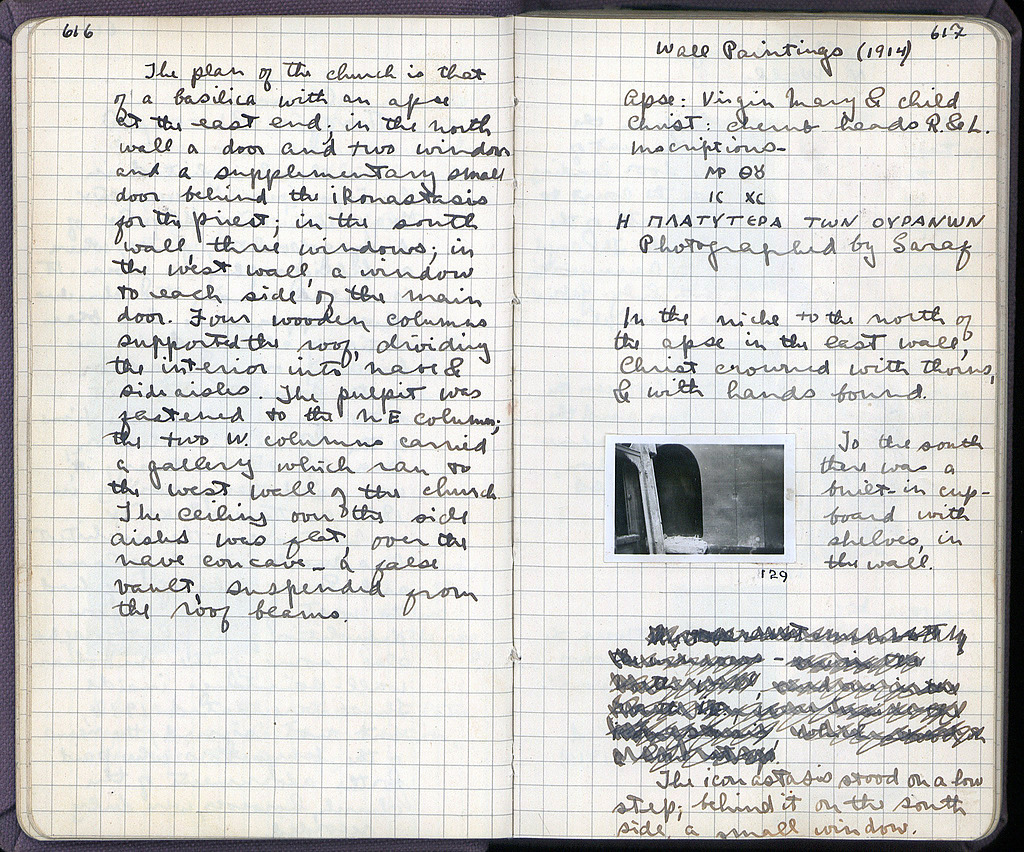 616
The plan of the church is that
of a basilica with an apse
at the east end; in the north
wall a door and two windows
and a supplementary small
door behind the ikonastasis
for the priest; in the south
wall three windows; in
the west wall, a window
to each side of the main
door. Four wooden columns
supported the roof, dividing
the interior into nave &
side aisles. The pulpit was
fastened to the NE column;
the two W. columns carried
a gallery which ran to
the west wall of the church.
The ceiling over the side
aisles was flat, over the
nave concave - a false
vault, suspended from
the roof beams.
617
Wall Paintings (1914)
Apse: Virgin Mary & child
Christ: cherub heads R. & L.
Inscriptions-
ΜΡ ΘΥ
ΙC ΧC
Η ΠΛΑΤΥΤΕΡΑ ΤΩΝ ΟΥΡΑΝΩΝ
Photographed by Saraf
In the niche to the north of
the apse in the east wall,
Christ crowned with thorns,
& with hands bound.
To the south
there was a
built-in cup-
board with
shelves, in
the wall.
129
The iconastasis stood on a low
step; behind it on the south
side, a small window.